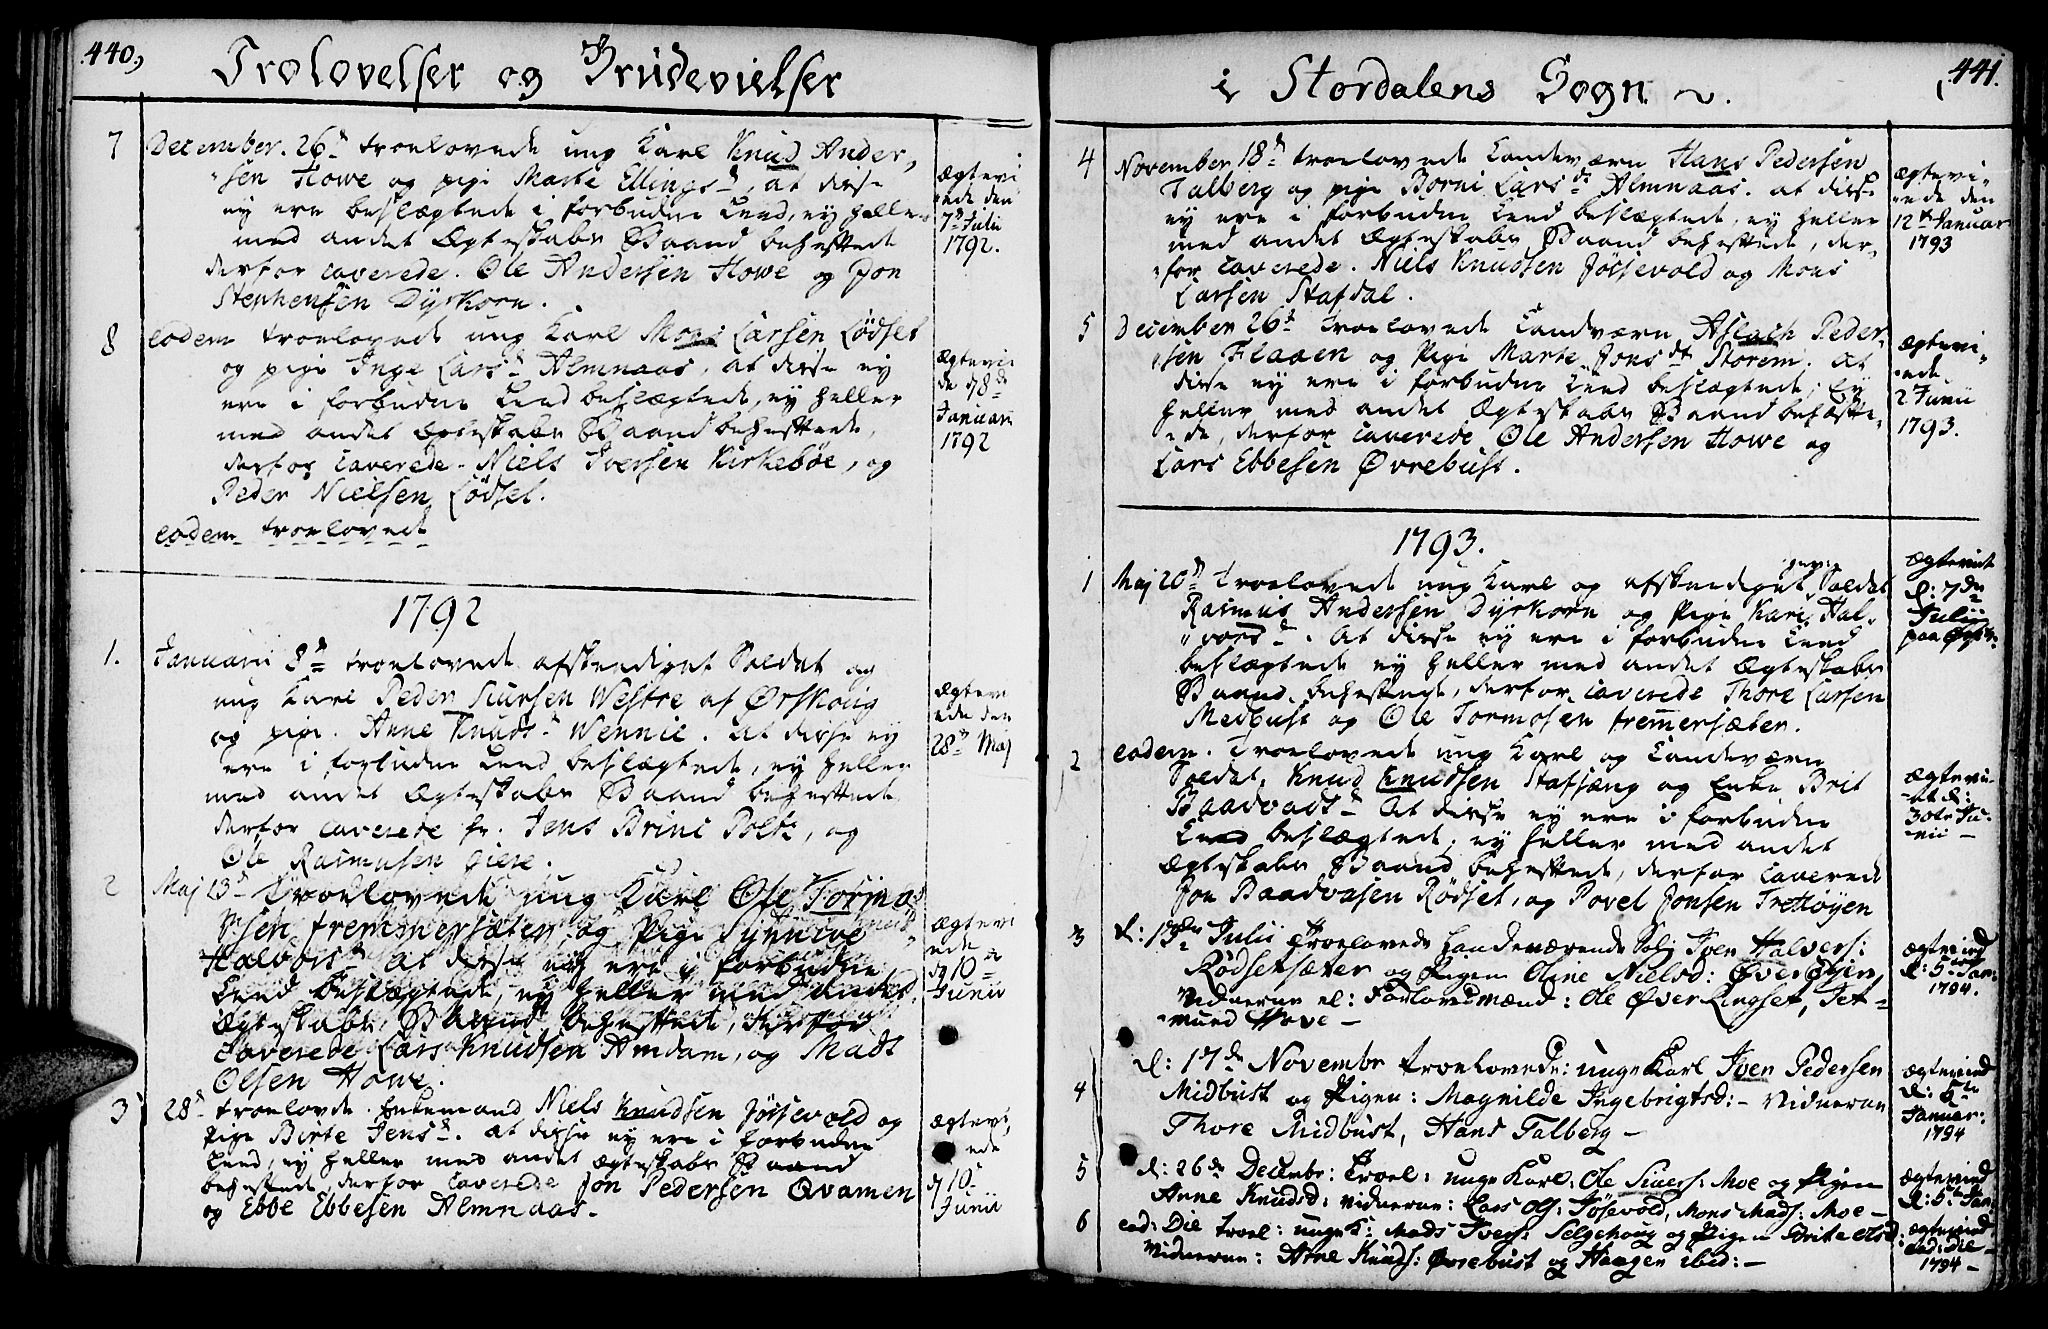 440,
Trolovelser og Brudevielser
7 December. 26d troelovede ung Karl Knud Ander,
"sen Howe og pige Marte Ellingsd, at disse
ey ere beslægtede i forbudne Leed, ey heller
med andet Ægteskabs Baand behæftede
derfor caverede. Ole Andersen Howe og Jon
Stephensen Dyrkorn.
ægtevi
ede den
7d Julii
1792.
8 eodem troelovede ung Karl Mons Larsen Lødset
og pige Inge Larsd Almnaas, at disse ey
ere i forbudne Leed beslægtede, ey heller
med andet Ægteskabs Baand behæftede,
derfor caverede. Niels Iversen Kirkebøe, og
Peder Nielsen Lødset.
eodem troelovede
ægtevi
de d 8de
Januari
1792
1792
1. Januarii 8d troelovede afskediget Soldat og
ung Karl Peder Siursen Westre af Ørskoug
og pige. Anne Knudsd Wennie. At disse ey
ere i forbudne Leed beslægtede, ey heller
med andet Ægteskabs Baand behæftede
derfor caverede hr. Jens Brini Politz, og
Ole Rasmusen Giere.
ægtevi
ede den
28d Maj
2 Maj 13d troelovede ung Karl Ole Tormo
"sen fremmersæter, og Pige Synnive
Halvorsd At disse ey ere i forbudne
Leed beslægtede, ey heller med andet
Ægteskabs Baand behæftede, derfor
caverede Lars Knudsen Amdam, og Mads
Olsen Howe.
ægtevi
ede
d 10d
Junii
3 28d troelovde Enkemand Niels Knudsen Jøssevold og
Pige Birte Jensd. at disse ey ere i forbudne
Leed, ey heller med andet ægteskabs Baand
behæftede, derfor caverede Jon Pedersen Qvamen
og Ebbe Ebbesen Almnaas.
ægtevi,
ede
d 10d
Junii
441.
i Stordalens Sogn.
4 November 18d troelovede Landeværn Hans Pedersen
Talberg og pige Borni Larsd Almnaas. at disse
ey ere i forbudne Leed beslægtede, ey heller
med andet Ægteskabs Baand behæftede, der-
"for caverede. Niels Knudsen Jøssevold og Mons
Larsen Stafdal.
ægtevi"
"ede den
12te Januar
1793
5 December 26d troelovede Landværn Aslach Peder-
"sen Flaaen og Pige Marte Jonsdt Storem. at
disse ey ere i forbudne Leed beslægtede, Ey
heller med andet Ægteskabs Baand behæfte,
"de, derfor caverede Ole Andersen Howe og
Lars Ebbesen Øvrebust.
ægtevi"
"ede
2 Junii
1793.
1793.
1 Maj 20d troelovede ung Karl og afskeediget Soldat
Rasmus Andersen Dyrkorn og Pige Kari Hal-
"vorsd. At disse ey ere i forbudne Leed
beslægtede ey heller med andet Ægteskabs
Baand behæftede, derfor caverede Thore Larsen
Medbust og Ole Tormosen fremmersæter.
ægteviet
d: 7de
Julii
paa
2 eodem. Troelovede ung Karl og Landeværn
Soldat, Knud Knudsen Stafsæng og Enke Brit
Baadvadsd At disse ey ere i forbudne
Leed beslægtede, ey heller med andet
Ægteskabs Baand behæftede, derfor caverede
Jon Baadvasen Rødset, og Povel Jonsen Trettøyen
ægtevi-
-et d:
30te Ju-
nii -
3 d: 13de Julii Troelovede Landeværende Iver Halvors:
Rødsensæter og Pigen Oline Nielsd: Øver
Vidnerne el: Forlovsmænd: Ole Øver Lingset, Tet-
-mund Hove -
ægteviede
d: 5te Jan:
1794.
4 d: 17de Novembr troelovede: unge Karl Iver Pedersen
Midbust og Pigen: Magnilde Ingebrigtsd: - Vidnerne
Thore Midbust, Hans Talberg -
ægteviede
d: 5te
Januar:
1794
5 d: 26de Decembr: Troel: unge Karl: Ole Siuers: Moe og Pigen
Anne Knudsd: vidnerne: Lars Ols: Jøsevold, Mons Mads: Moe -
ægteviede
d: 5te Jan:
6 eod: Die troel: unge K: Mads Ivers: Selgehoug og Pigen Brite Elsd:
Vidnerne: Arne Knuds: Øvrebust og Haagen ibid: -
ægteviede
eod: die -
1794 -